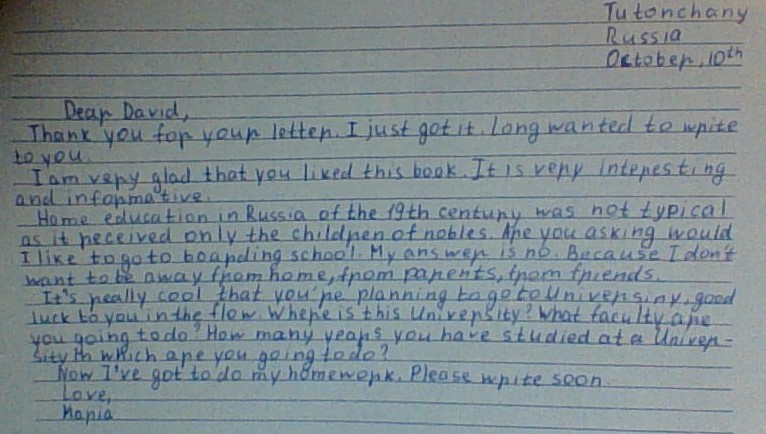 Tutonchany
Russia
October, 10th
Dear David,
Thank you for your letter. I just got it. Long wanted to write
to you.
I am very glad that you liked this book. It is very interesting
and informative.
Home education in Russia of the 19th century was not typical
as it received only the children of nobles. Are you asking would
I like to go to boarding school. My answer is no. Because I don't
want to be away from home, from parents, from friends.
It's really cool that you're planning to go to Universiny, good
luck to you in the flow. Where is this University? What faculty are
you going to do? How many years you have studied at a Univer-
sity in which are you going to do?
Now I've got to do my homework. Please write soon.
Love,
Maria